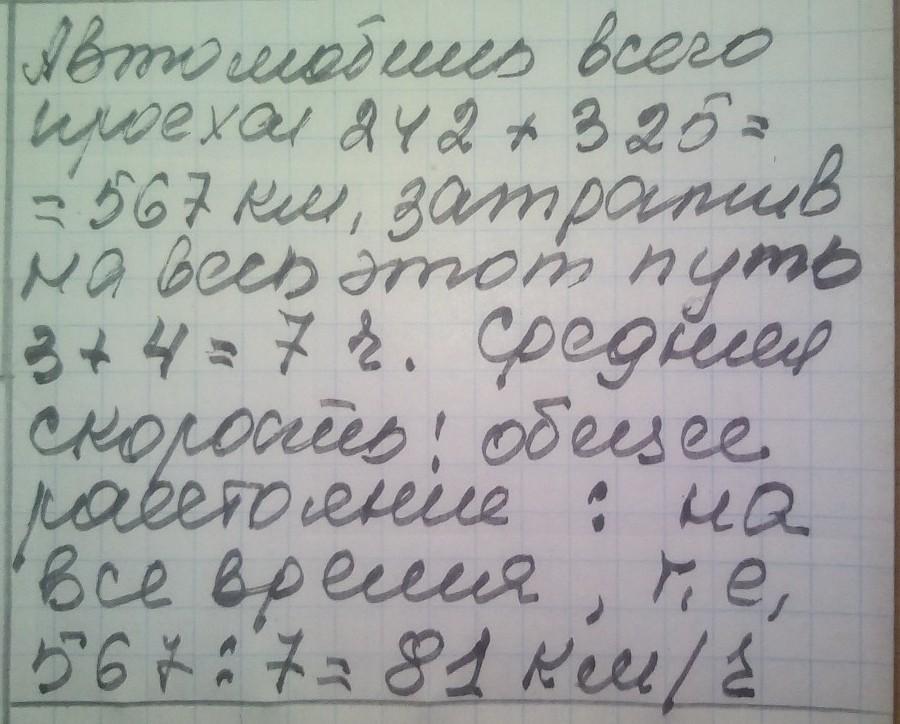 Автомобиль всего
проехал 242 + 325 =
= 567 км, затратив
на весь этот путь
3 + 4 = 7 ч. Средняя
скорость: общее
расстояние : на
все время, т.е,
567 : 7 = 81 км/ч